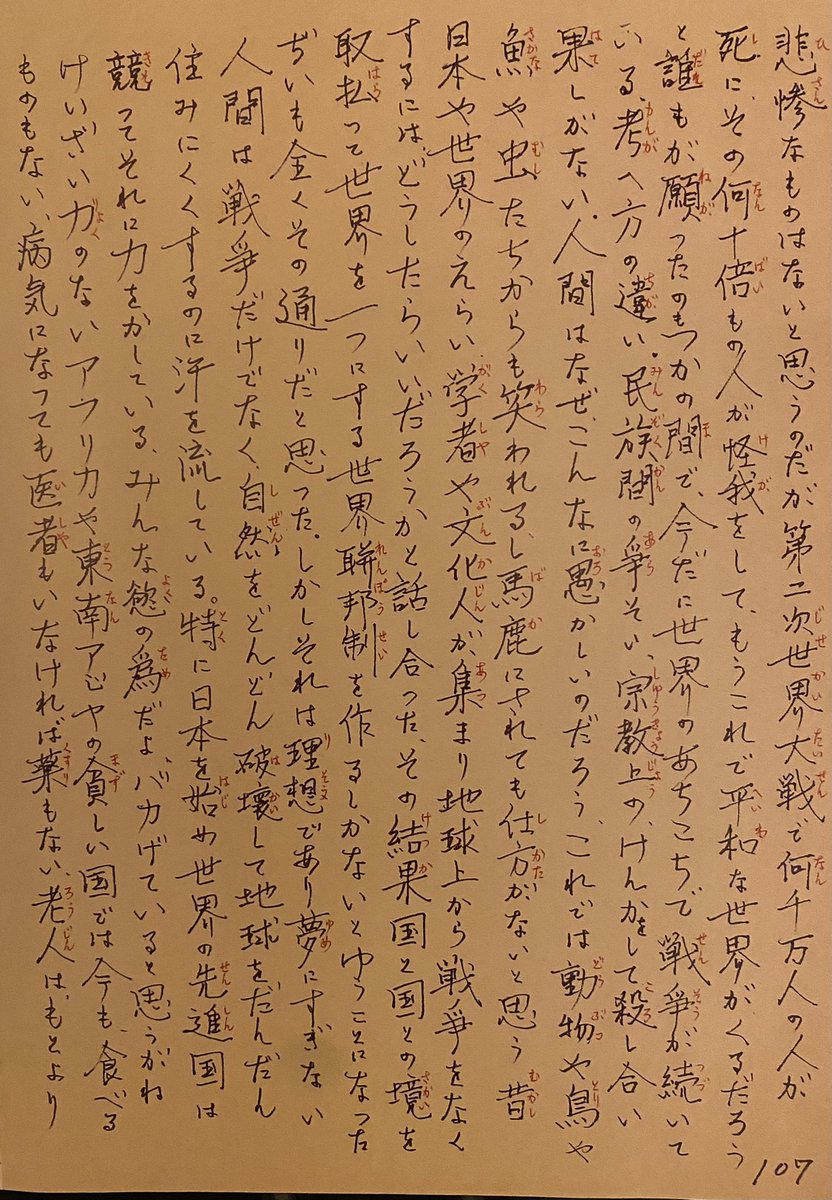 悲惨なものはないと思うのだが第二次世界大戦で何千万人の人が
死に、その何十倍もの人が怪我をして、もうこれで平和な世界がくるだろう
と誰もが願ったのもつかの間で、今だに世界のあちこちで戦争が続いて
いる、考へ方の違い、民族間の争そい、宗教上の、けんかをして殺し合い
果しがない、人間はなぜこんなに愚かしいのだろう、これでは動物や鳥や
魚や虫たちからも笑われるし馬鹿にされても仕方がないと思う昔
日本や世界のえらい学者や文化人が集まり地球上から戦争をなく
するには、どうしたらいいだろうかと話し合った、その結果国と国との境を
取払って世界を一つにする世界聯邦制を作るしかないとゆうことになった
ぢいも全くその通りだと思った。しかしそれは理想であり夢にすぎない
人間は戦争だけでなく、自然をどんどん破壊して地球をだんだん
住みにくくするのに汗を流している。特に日本を始め世界の先進国は
競ってそれに力をかしている、みんな慾の爲だよ、バカげていると思うがね
けいざい力のないアフリカや東南アジヤの貧しい国では今も、食べる
ものもない、病気になっても医者もいなければ薬もない、老人は、もとより
107